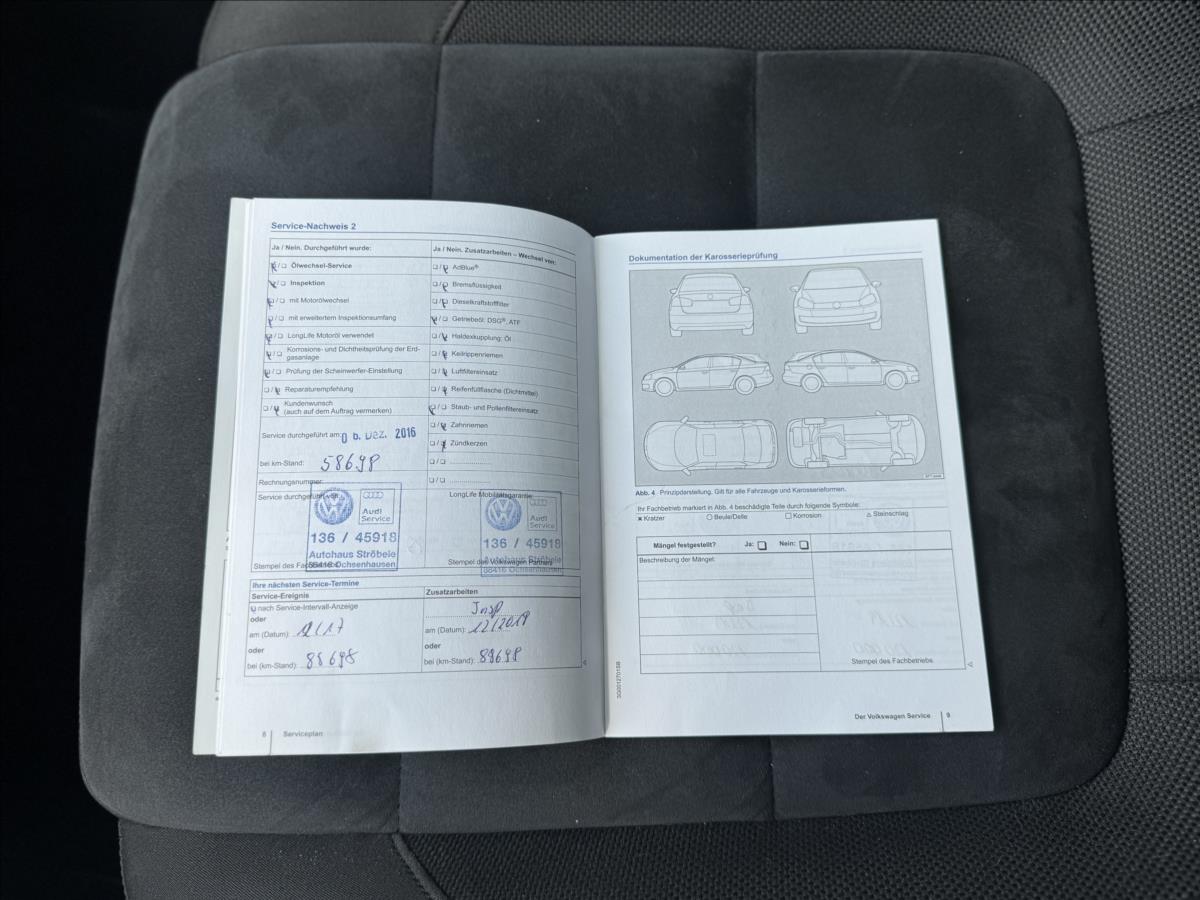 Service-Nachweis 2
Ja / Nein. Durchgeführt wurde:
Ja / Nein. Zusatzarbeiten – Wechsel von:
Ölwechsel-Service
AdBlue®
Inspektion
Bremsflüssigkeit
mit Motorölwechsel
Dieselkraftstofffilter
mit erweitertem Inspektionsumfang
Getriebeöl: DSG®, ATF
LongLife Motoröl verwendet
Haldexkupplung: Öl
Korrosions- und Dichtheitsprüfung der Erd-
gasanlage
Keilrippenriemen
Prüfung der Scheinwerfer-Einstellung
Luftfiltereinsatz
Reparaturempfehlung
Reifenfüllflasche (Dichtmittel)
Kundenwunsch
(auch auf dem Auftrag vermerken)
Staub- und Pollenfiltereinsatz
Zahnriemen
Zündkerzen
Service durchgeführt am: 0 6. Dez. 2016
bei km-Stand: 58698
Rechnungsnummer:
Service durchgeführt von:
LongLife Mobilitätsgarantie
Audi
Service
136 / 45918
Autohaus Ströbele
88416 Ochsenhausen
Stempel des Fachbetriebs
Audi
Service
136 / 45918
Autohaus Ströbele
88416 Ochsenhausen
Stempel des Volkswagen Partners
Ihre nächsten Service-Termine
Service-Ereignis
Zusatzarbeiten
nach Service-Intervall-Anzeige
Insp
oder
am (Datum): 12/17
am (Datum): 12/2018
oder
oder
bei (km-Stand): 88698
bei (km-Stand): 88698
8 Serviceplan
Dokumentation der Karosserieprüfung
Abb. 4 Prinzipdarstellung. Gilt für alle Fahrzeuge und Karosserieformen.
Ihr Fachbetrieb markiert in Abb. 4 beschädigte Teile durch folgende Symbole:
Kratzer Beule/Delle Korrosion Steinschlag
Mängel festgestellt? Ja: Nein:
Beschreibung der Mängel:
Stempel des Fachbetriebs
3G0012701SB
Der Volkswagen Service 9